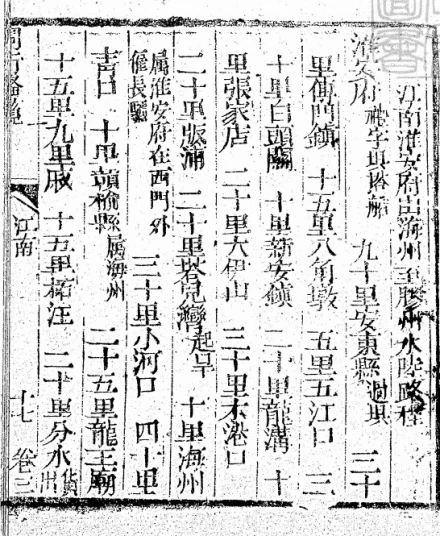 江南淮安府由海州至膠州水陸路程
淮安府 禮字垻搭船 九十里安東縣 過垻 三十
里傅門鎮 十五里八角墩 五里五江口 三
十里白頭關 十里新安鎮 二十里龍溝 十
里張家店 二十里大伊山 三十里木港口
二十里版浦 二十里塔兒灣 起旱 十里海州
屬淮安府在西門外
僱長騾 三十里小河口 四十里
青口 十里贑榆縣 屬海州 二十五里龍王廟
十五里九里 十五里柘汪 二十里分水 貨出
江南 十七 卷三